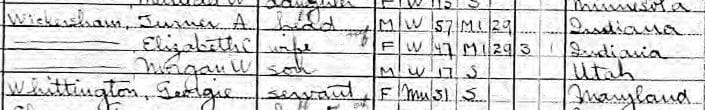 daughter F W 15 S Minnesota
Wickersham, Turner A. head M W 57 M1 29 Indiana
—— Elizabeth C wife F W 47 M1 29 3 1 Indiana
—— Morgan W son M W 17 S Utah
Whittington, Georgie servant F Mu 31 S Maryland